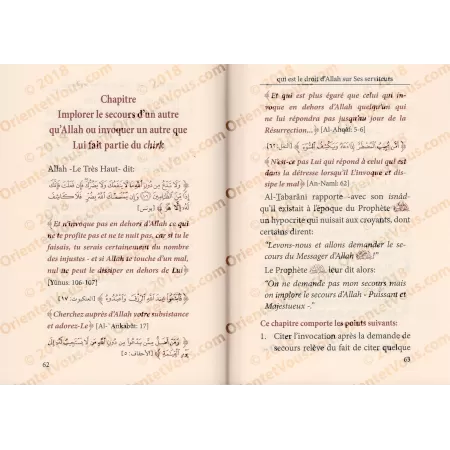 Chapitre
Implorer le secours d'un autre
qu'Allah ou invoquer un autre que
Lui fait partie du chirk
Allah -Le Très Haut- dit:
« Et n'invoque pas en dehors d'Allah ce
qui ne te profite pas et ne te nuit pas, car si tu le
faisais, tu serais certainement du nombre
des injustes - et si Allah te touche d'un mal,
nul ne peut le dissiper en dehors de Lui »
[Yûnus: 106-107]
« Cherchez auprès d'Allah votre subsistance
et adorez-Le » [Al- 'Ankabût: 17]
62
qui est le droit d'Allah sur Ses serviteurs
« Et qui est plus égaré que celui qui in-
voque en dehors d'Allah quelqu'un qui
ne lui répondra pas jusqu'au jour de la
Résurrection... » [Al-Ahqâf: 5-6]
« N'est-ce pas Lui qui répond à celui qui est
dans la détresse lorsqu'il L'invoque et dis-
sipe le mal » [An-Naml: 62]
Al-Tabarâni rapporte -avec son isnâd-
qu'il existait à l'époque du Prophète ﷺ
un hypocrite qui nuisait aux croyants, dont
certains dirent:
"Levons-nous et allons demander le se-
cours du Messager d'Allah ﷺ!"
Le Prophète ﷺ leur dit alors:
"On ne demande pas mon secours mais
on implore le secours d'Allah - Puissant et
Majestueux -"
Ce chapitre comporte les points suivants:
1. Citer l'invocation après la demande de
secours relève du fait de citer quelque
63